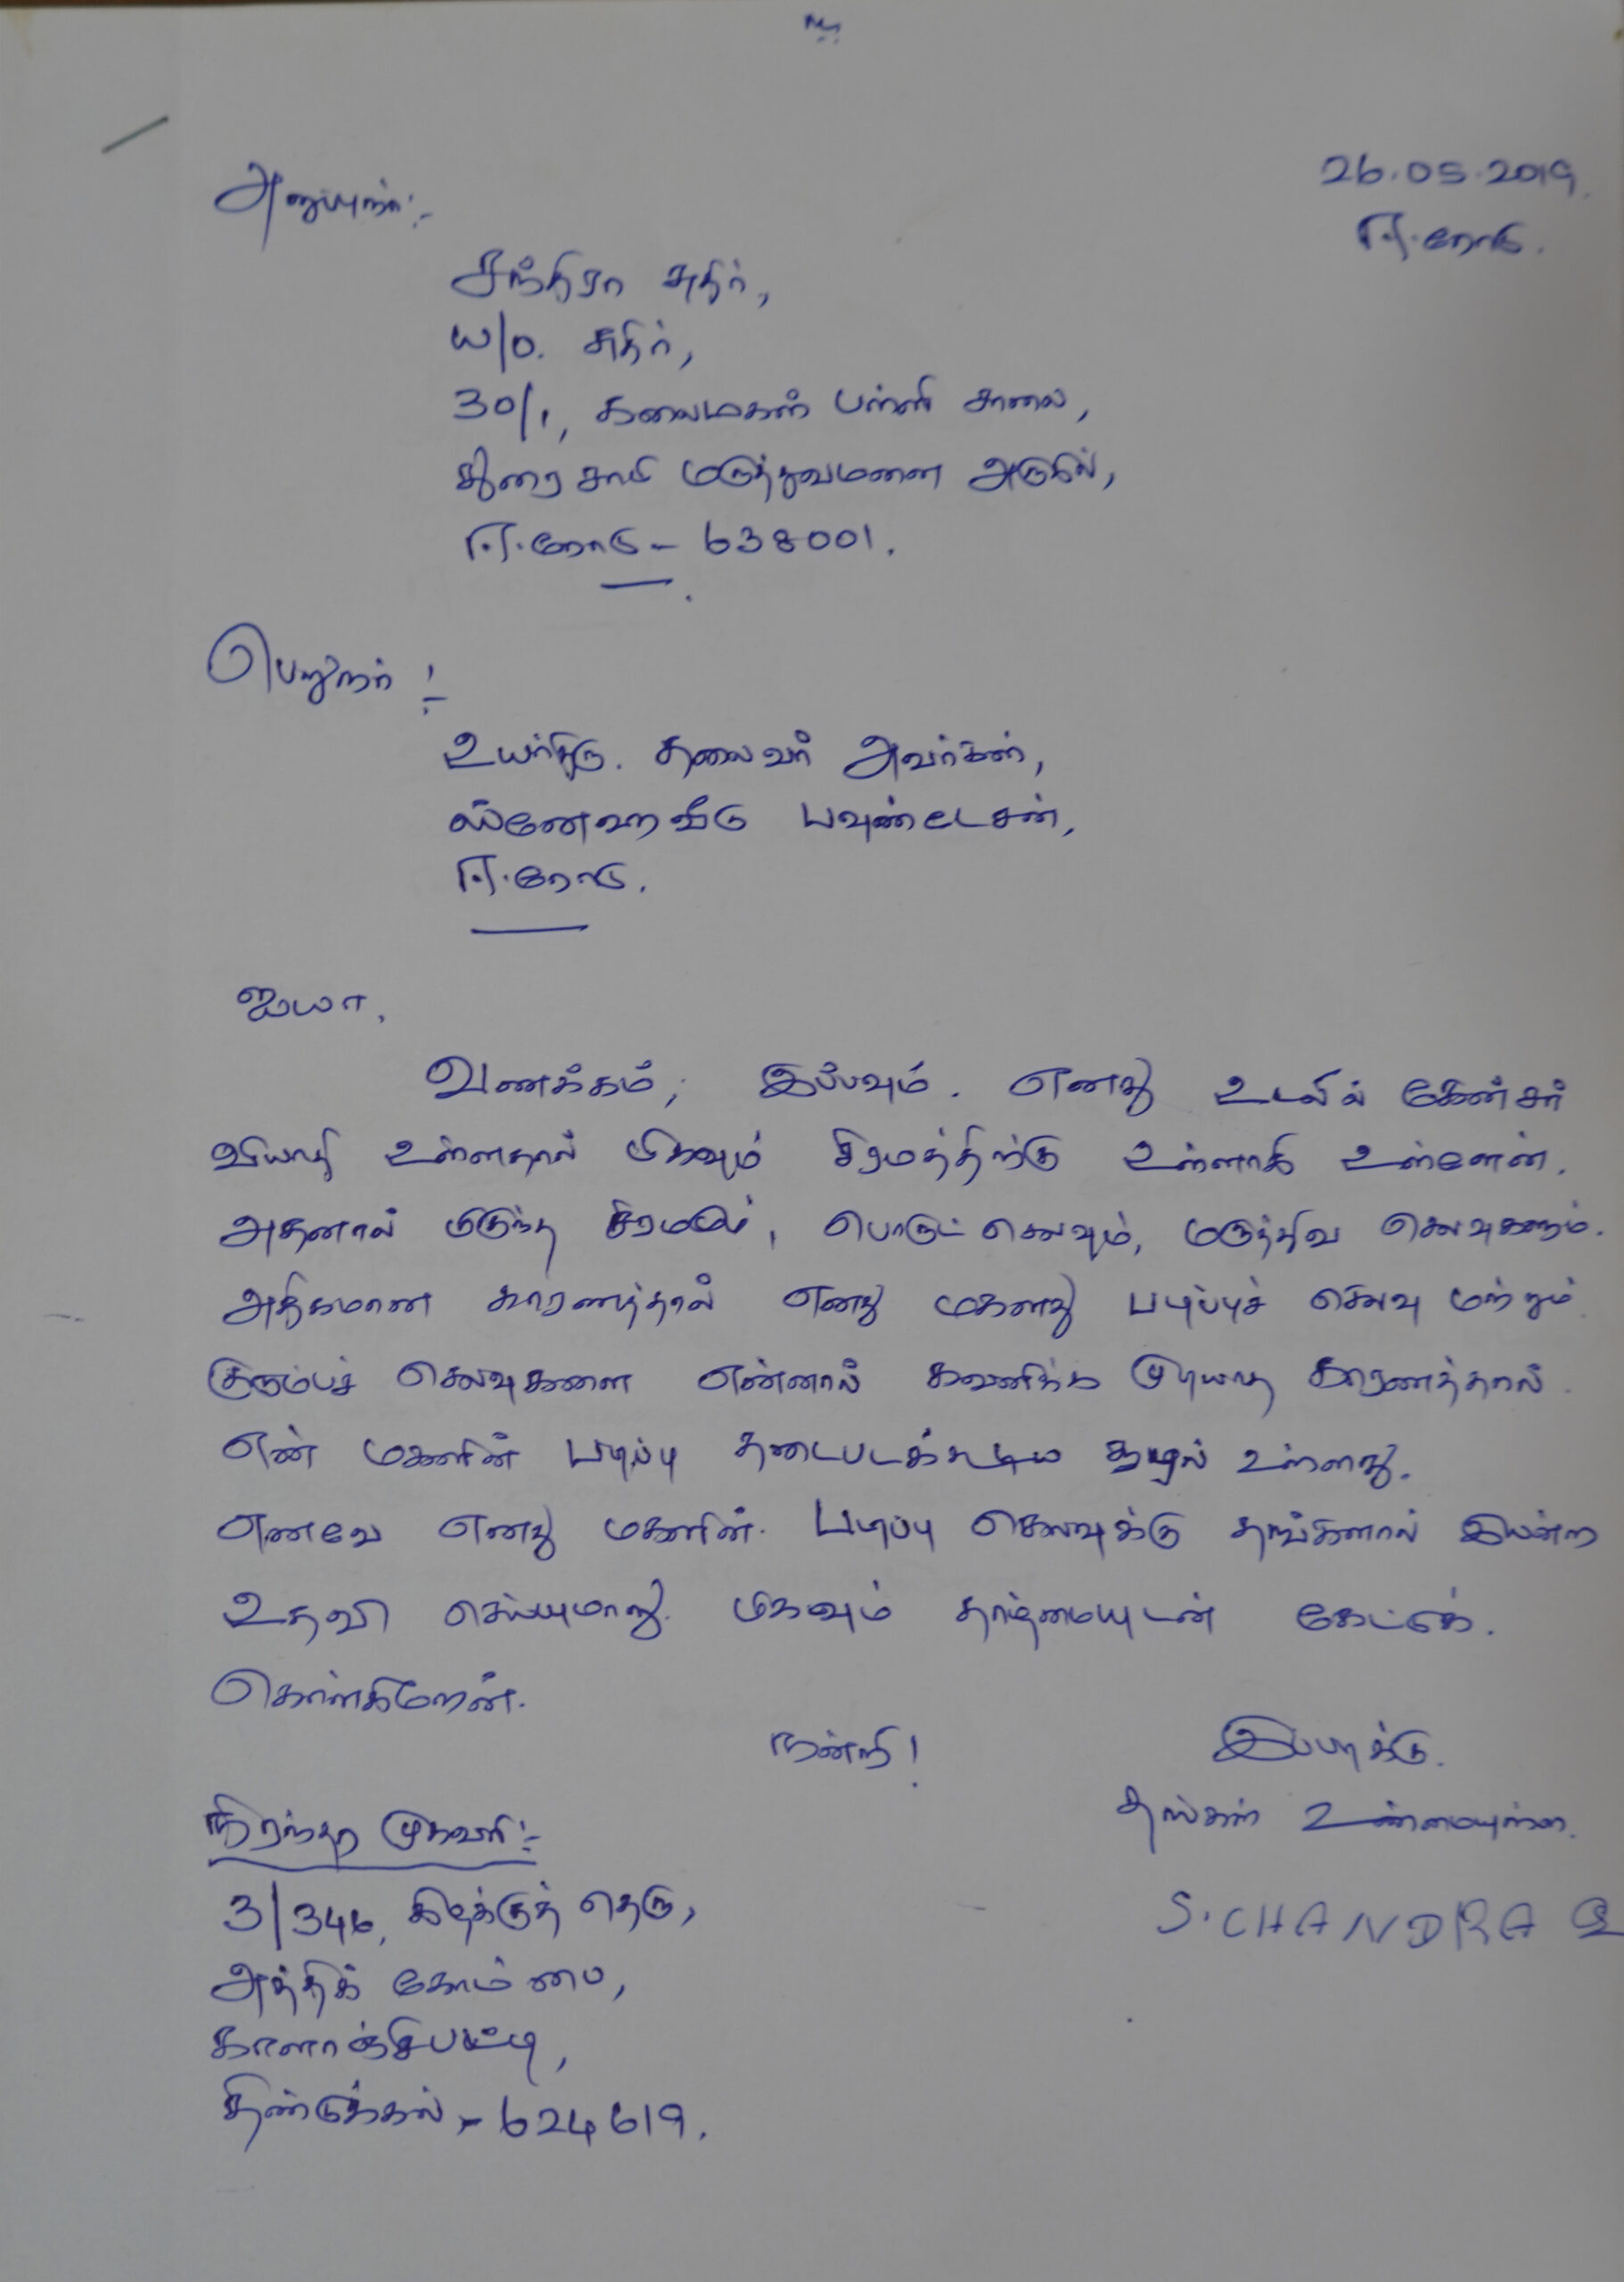 உ
26.05.2019.
ஈரோடு.
அனுப்புநர்:-
சந்திரா சுதிர்,
W/o. சுதிர்,
30/1, கலைமகள் பள்ளி சாலை,
துரைசாமி மருத்துவமனை அருகில்,
ஈரோடு - 638001.
பெறுநர்:-
உயர்திரு. தலைவர் அவர்கள்,
ஸ்னேஹவீடு பவுண்டேசன்,
ஈரோடு.
ஐயா,
வணக்கம்; இப்பவும். எனது உடலில் கேன்சர்
வியாதி உள்ளதால் மிகவும் சிரமத்திற்கு உள்ளாகி உள்ளேன்.
அதனால் மிகுந்த சிரமமும், பொருட் செலவும், மருத்துவ செலவுகளும்.
அதிகமான காரணத்தால் எனது மகளது படிப்புச் செலவு மற்றும்
குடும்பச் செலவுகளை என்னால் கவனிக்க முடியாத காரணத்தால்
என் மகளின் படிப்பு தடைபடக்கூடிய சூழல் உள்ளது.
எனவே எனது மகளின். படிப்பு செலவுக்கு தங்களால் இயன்ற
உதவி செய்யுமாறு. மிகவும் தாழ்மையுடன் கேட்டுக்.
கொள்கிறேன்.
நன்றி!
இப்படிக்கு.
தங்கள் உண்மையுள்ள.
S.CHANDRA
நிரந்தர முகவரி:-
3/346, கிழக்குத் தெரு,
அத்திக் கோம்பை,
காளாஞ்சிபட்டி,
திண்டுக்கல் - 624619.